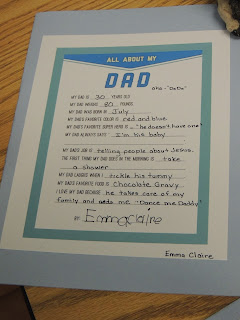 ALL ABOUT MY
DAD AKA - "DaDa"
MY DAD IS 30 YEARS OLD
MY DAD WEIGHS 80 POUNDS
MY DAD WAS BORN IN July
MY DAD'S FAVORITE COLOR IS red and blue
MY DAD'S FAVORITE SUPER HERO IS "he doesn't have one"
MY DAD ALWAYS SAYS "I'm his baby"
MY DAD'S JOB IS telling people about Jesus.
THE FIRST THING MY DAD DOES IN THE MORNING IS take
a shower
MY DAD LAUGHS WHEN I tickle his tummy
MY DAD'S FAVORITE FOOD IS Chocolate Gravy
I LOVE MY DAD BECAUSE he takes care of my
family and "Dance me Daddy"
BY: Emmaclaire
Emma Claire